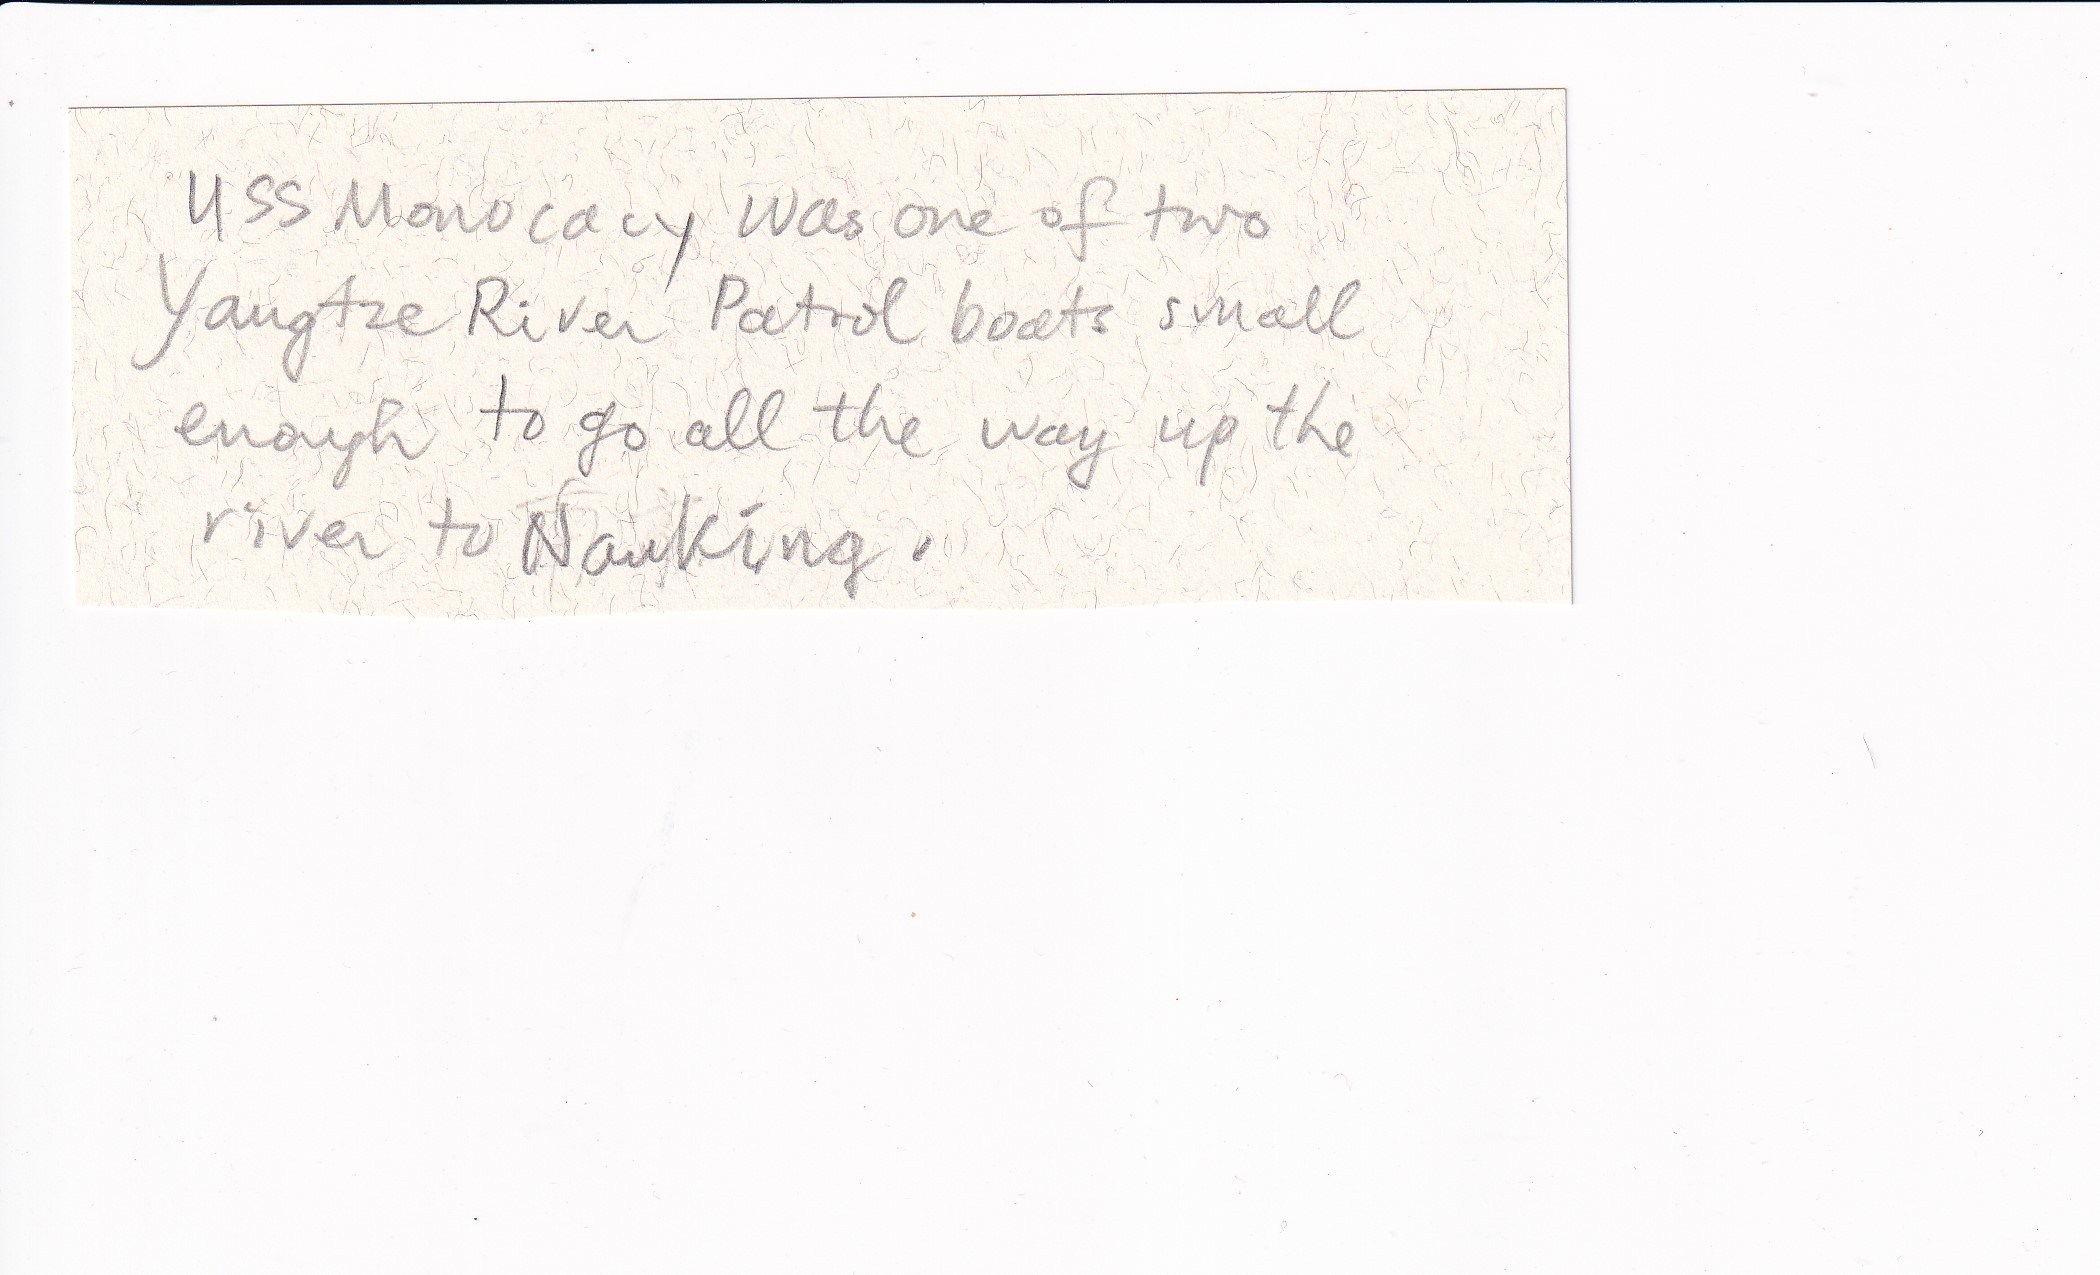 USS Monocacy was one of two
Yangtze River Patrol boats small
enough to go all the way up the
river to Nanking.